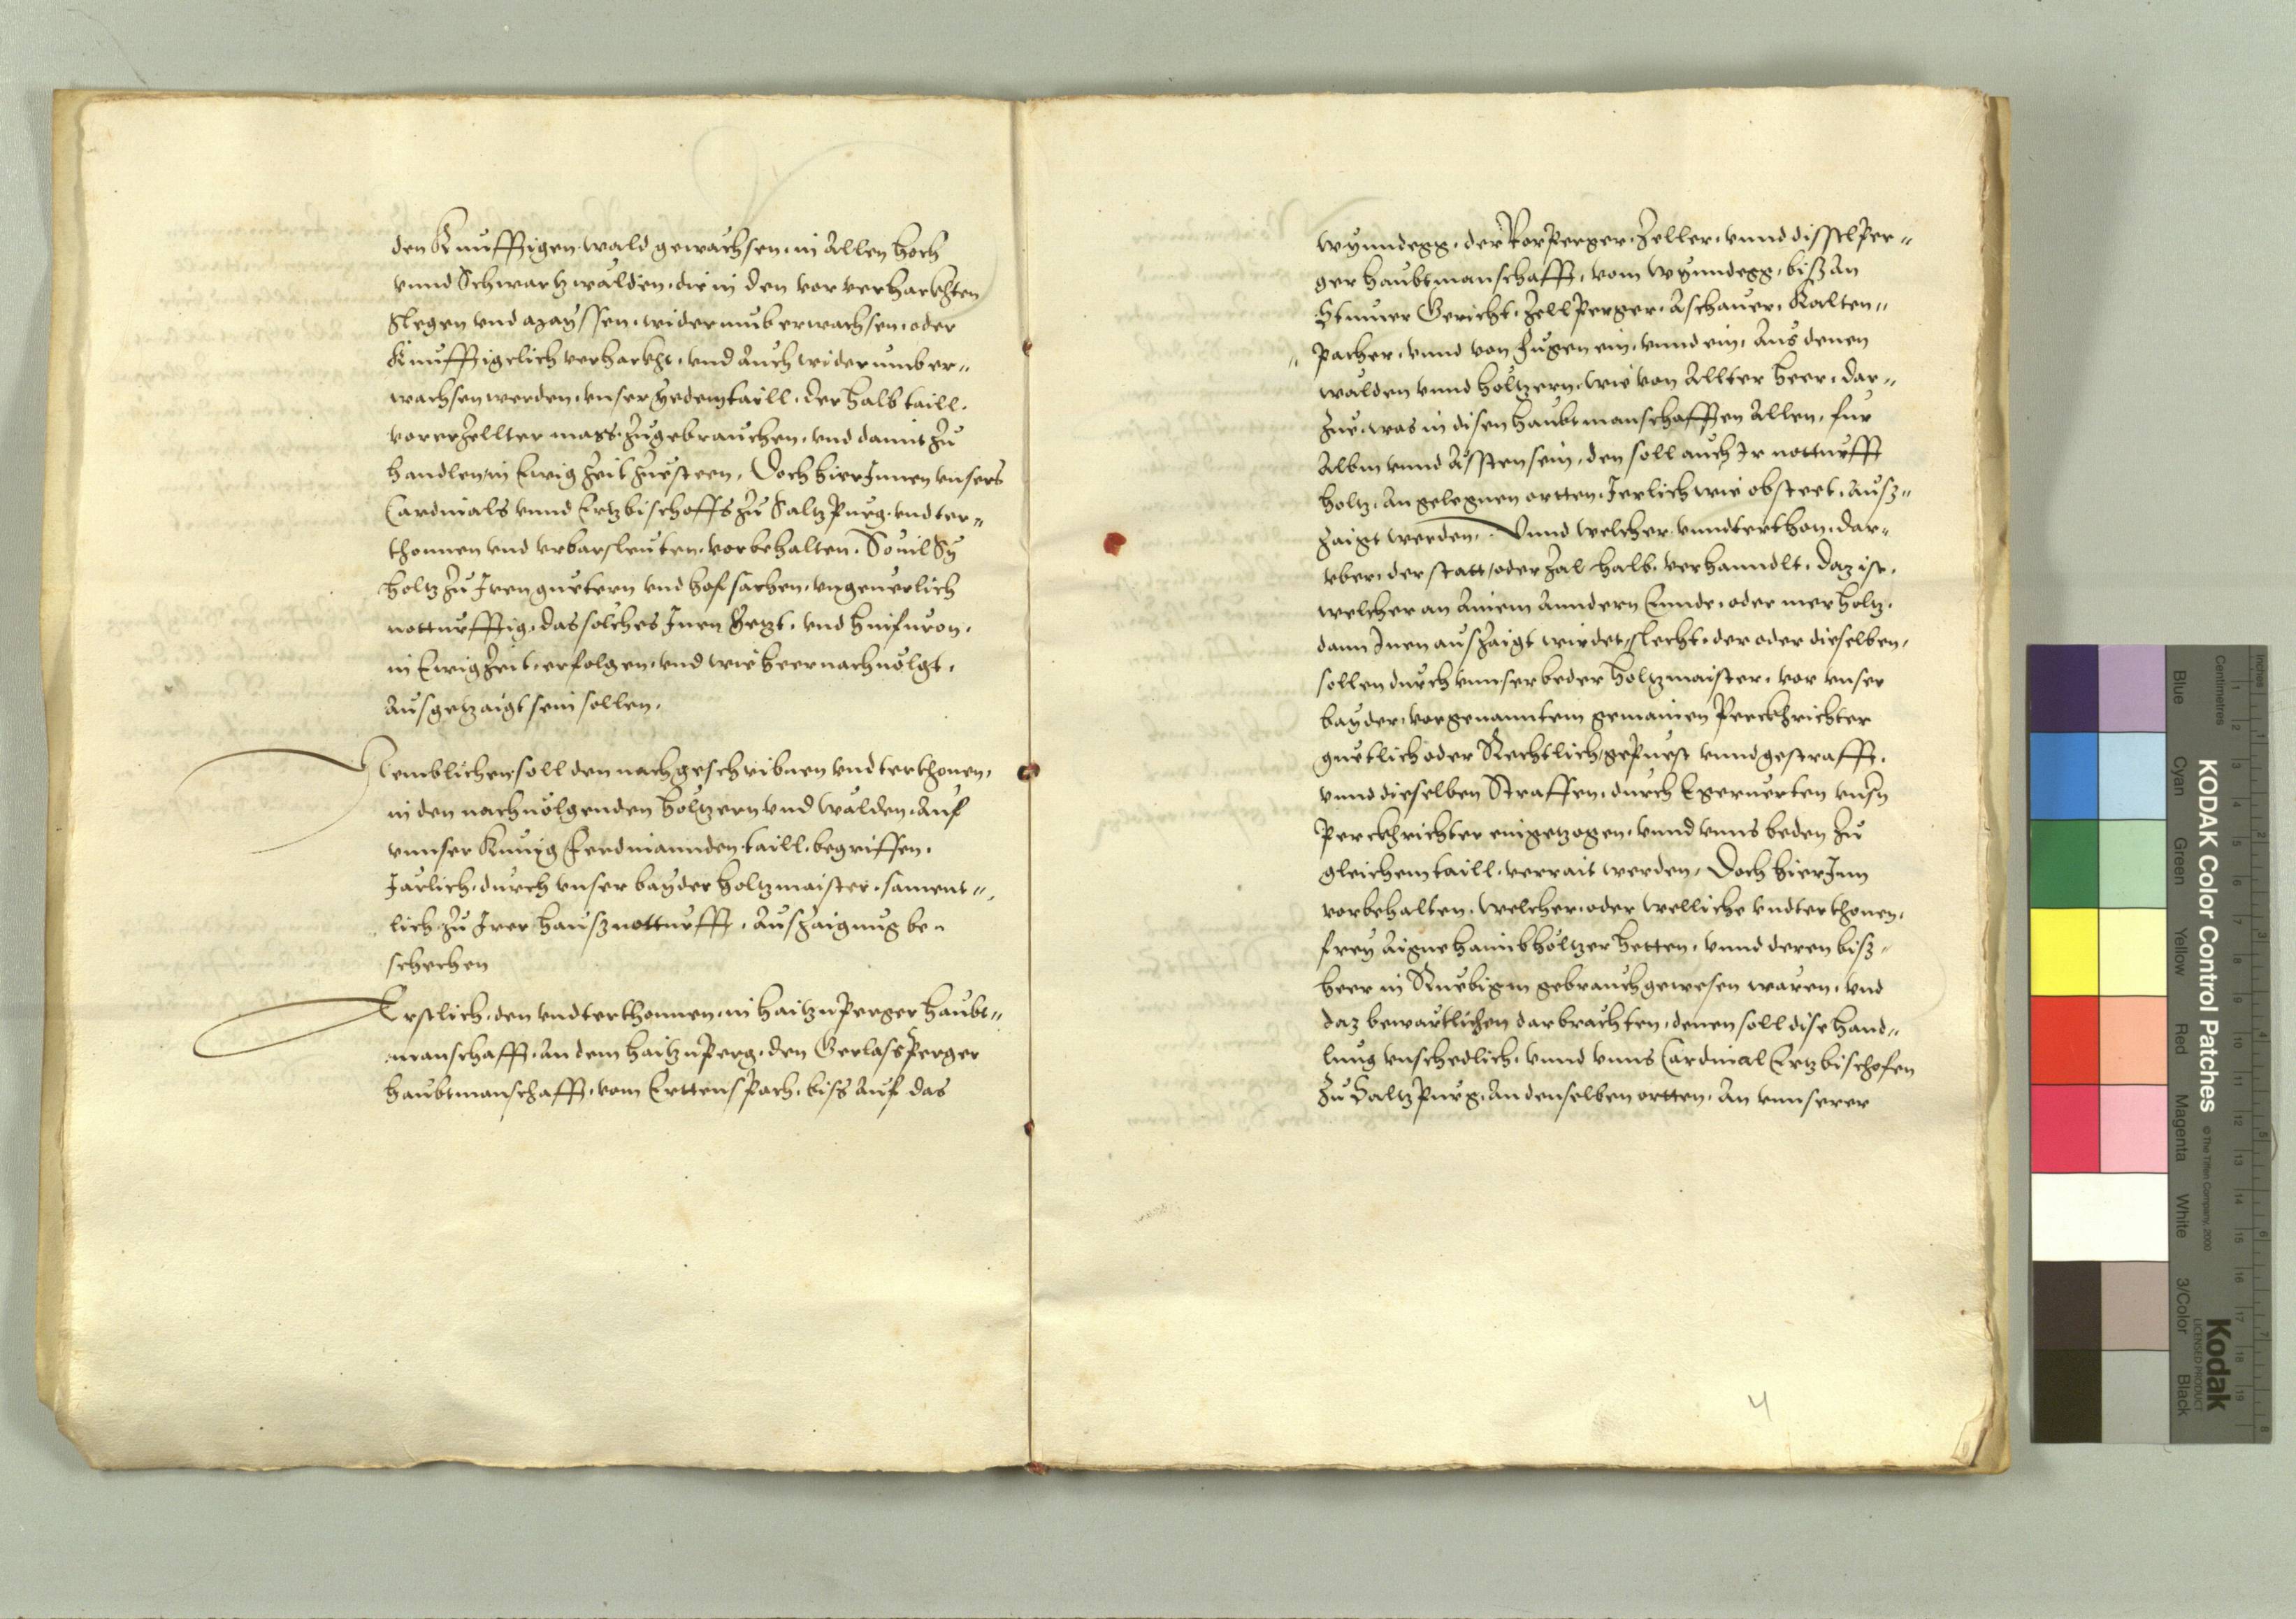 den Kunfftigen wald gewachsen, in Allen hoch
vnnd Schwartzwälden, die in den vor verhackhten
Slegen vnd aayssen, widerumb erwachsen, oder
Kunfftigclich verhackht, vnd Auch widerumb er„
wachsen werden, vnser yedem taill, der halb taill,
vorerzellter mass, zugebrauchen, vnd damit zu
handlen, in Ewig Zeit zuesteen, Doch hierjnnen vnsers
Cardinals vnnd Ertzbischoffs zu Saltzpurg, vndter„
thonnen vnd vrbarsleuten, vorbehalten, Souil Sy
holtz zu Iren guetern vnd hofsachen, vngeuerlich
notturfftig, das solches Inen yetzt, vnd hinfuron,
in Ewig Zeit, erfolgen, vnd wie heernachuolgt,
Ausgetzaigt sein sollen,
Nemblichen soll den nachgeschribnen vndterthonen,
in den nachuolgenden höltzern vnd wälden, Auf
vnnser Kunig Ferdinannden taill, begriffen,
Järlich, durch vnser bayder holtzmaister, sament„
lich zu Irer hausznotturfft, Auszaigung be„
schehen
Erstlich, den vndterthonnen, in haitznperger haubt„
manschafft, An dem haitznperg, den Gerlassperger
haubtmanschafft, vom Erttenspach, biss Auf das
Wynndegg, der Rorperger, Zeller, vnnd disstlper„
ger haubtmanschafft, vom Wynndegg, bisz An
Stumer Gericht, Zellperger, Aschauer, Kalten„
„ pacher, vnnd von Fugen ein, vnnd ein, Aus denen
wälden vnnd höltzern, wie von Allter heer, dar„
zue, was in disen haubtmanschafften Allen, fur
Albm vnnd Assten sein, den soll auch Ir notturfft
holtz, An gelegnen ortten, Jerlich wie obsteet, Ausz„
zaigt werden, Vnnd welcher vnndterthon, dar„
vber, der statt, oder zal halb, verhanndlt, daz ist,
welcher an Ainem Anndern Ennde, oder mer holtz,
dann Inen auszaigt wirdet, slecht, der oder dieselben,
sollen durch vnnser beder holtzmaister, vor vnser
bayder, vorgenanntem gemainen Perckhrichter
guetlich oder Rechtlich, gepuest vnnd gestrafft,
vnnd dieselben Straffen, durch Egeruerten vnsn
Perckhrichter eingetzogen, vnnd vnns beden zu
gleichem taill, verrait werden, Doch hierjnn
vorbehalten, welcher, oder welliche vndterthonen,
frey Aigne haimbhöltzer hetten, vnnd deren bisz„
heer in Ruebigm gebrauch gewesen waren, vnd
daz bewärtlichen darbrachten, denen soll dise hand„
lung vnschedlich, vnnd vnns Cardinal Ertzbischofen
zu Saltzpurg, An denselben ortten, An vnnserer
4
KODAK Color Control Patches
© The Tiffen Company, 2000
Kodak
LICENSED PRODUCT
Inches
Centimetres
Blue Cyan Green Yellow Red Magenta White 3/Color Black